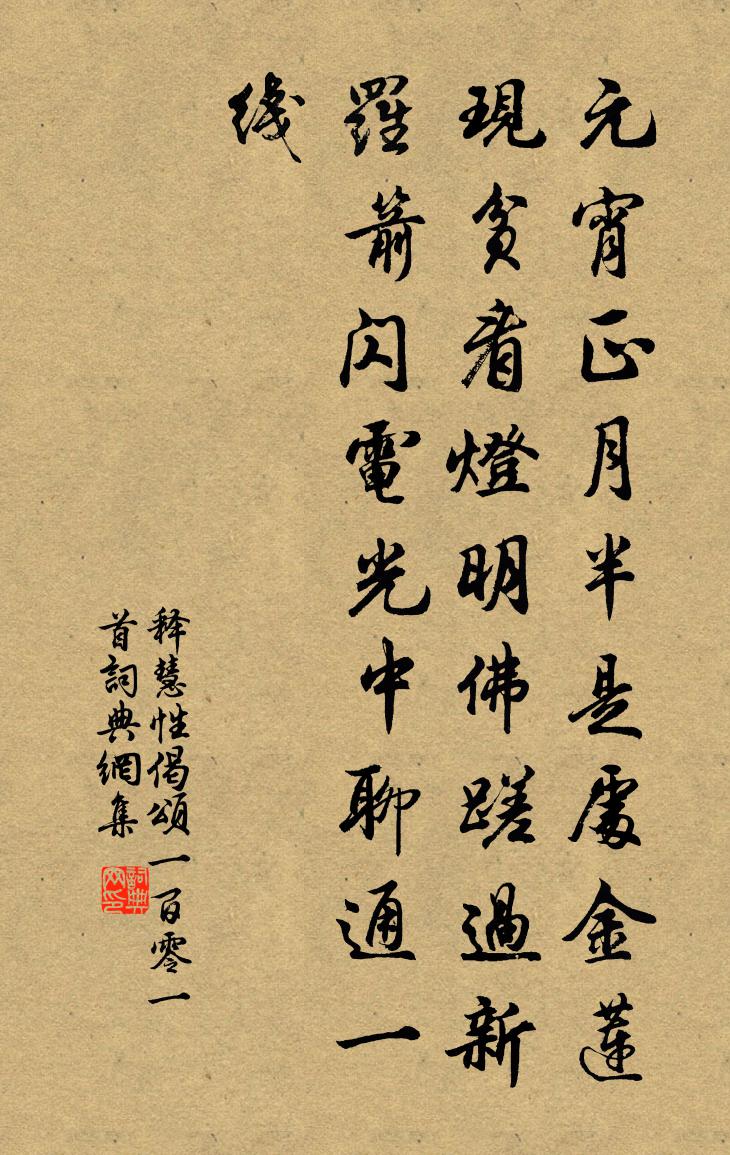 元宵正月半是處金蓮
現貧看燈明佛蹉過新
羅箭閃電光中聊通一
綫
释慧性偈頌一百零一
首詞典網集
詞典网印